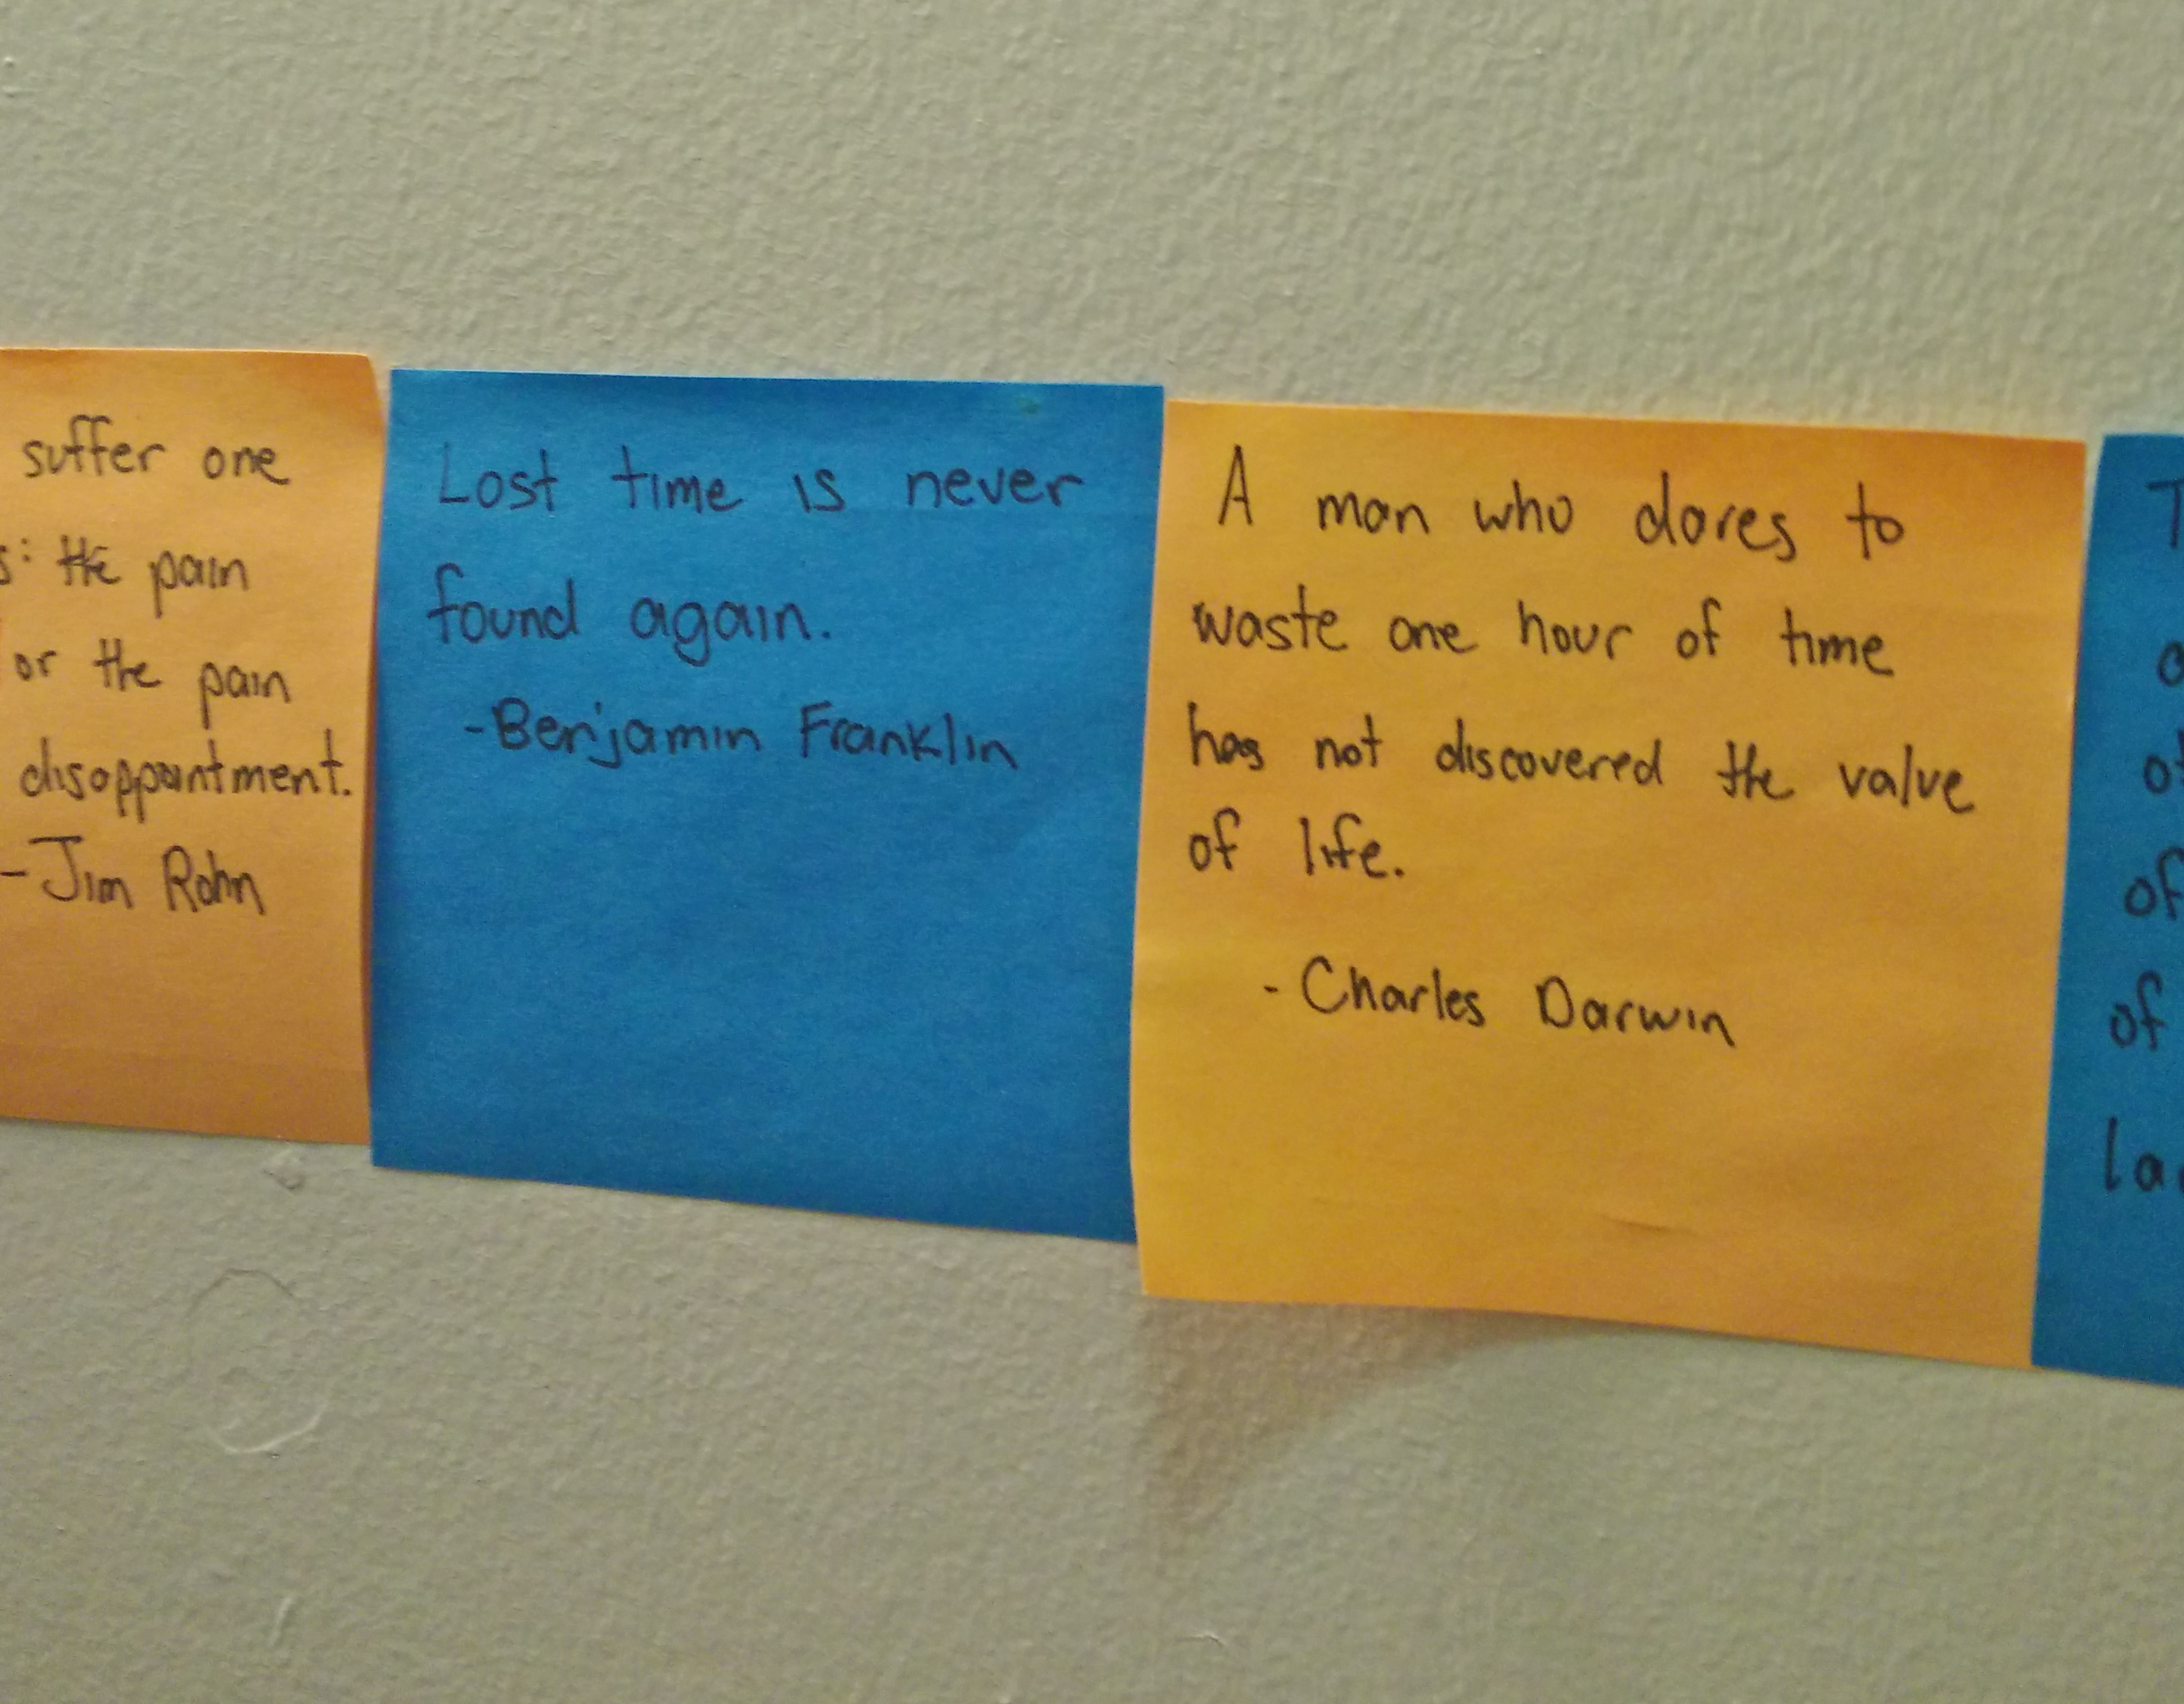 suffer one
s: the pain
or the pain
disappointment.
-Jim Rohn
Lost time is never
found again.
-Benjamin Franklin
A man who dares to
waste one hour of time
has not discovered the value
of life.
- Charles Darwin
T
of
of